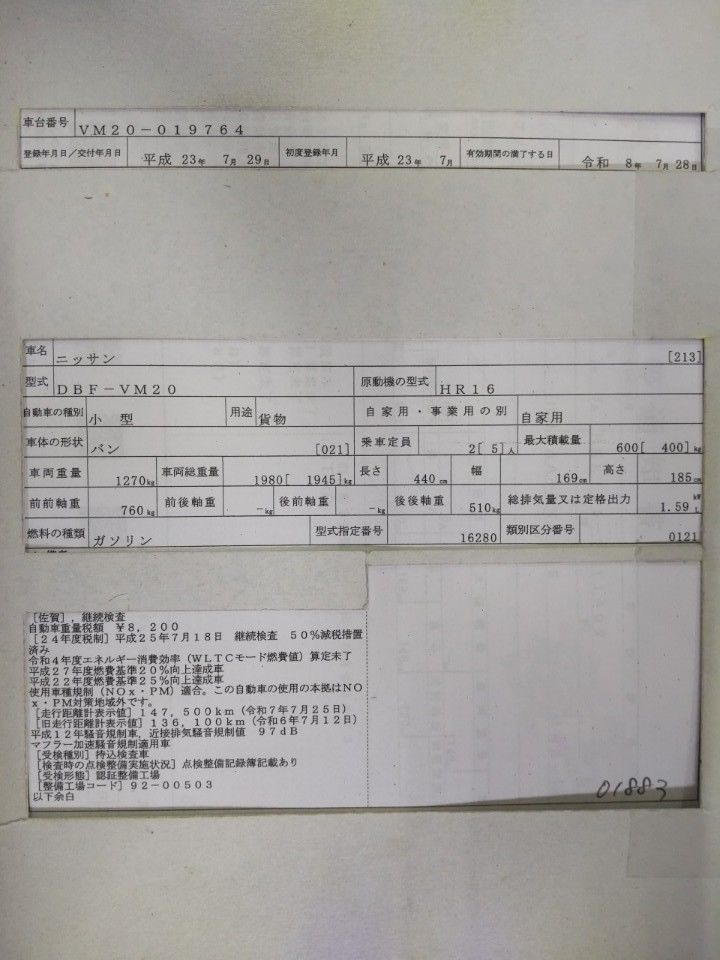 車台番号 VM20-019764
登録年月日／交付年月日 平成 23年 7月 29日 初度登録年月 平成 23年 7月 有効期間の満了する日 令和 8年 7月 28日
車名 ニッサン [213]
型式 DBF-VM20 原動機の型式 HR16
自動車の種別 小 型 用途 貨物 自家用・事業用の別 自家用
車体の形状 バン [021] 乗車定員 2[ 5]人 最大積載量 600[ 400]kg
車両重量 1270kg 車両総重量 1980[ 1945]kg 長さ 440cm 幅 169cm 高さ 185cm
前前軸重 760kg 前後軸重 -kg 後前軸重 -kg 後後軸重 510kg 総排気量又は定格出力 1.59 kW L
燃料の種類 ガソリン 型式指定番号 16280 類別区分番号 0121
[佐賀]，継続検査
自動車重量税額 ￥8，200
[24年度税制]平成25年7月18日 継続検査 50%減税措置
済み
令和4年度エネルギー消費効率（WLTCモード燃費値）算定未了
平成27年度燃費基準20%向上達成車
平成22年度燃費基準25%向上達成車
使用車種規制（NOx・PM）適合。この自動車の使用の本拠はNO
x・PM対策地域外です。
[走行距離計表示値]147，500km（令和7年7月25日）
[旧走行距離計表示値]136，100km（令和6年7月12日）
平成12年騒音規制車，近接排気騒音規制値 97dB
マフラー加速騒音規制適用車
[受検種別]持込検査車
[検査時の点検整備実施状況]点検整備記録簿記載あり
[受検形態]認証整備工場
[整備工場コード]92-00503
以下余白
01883